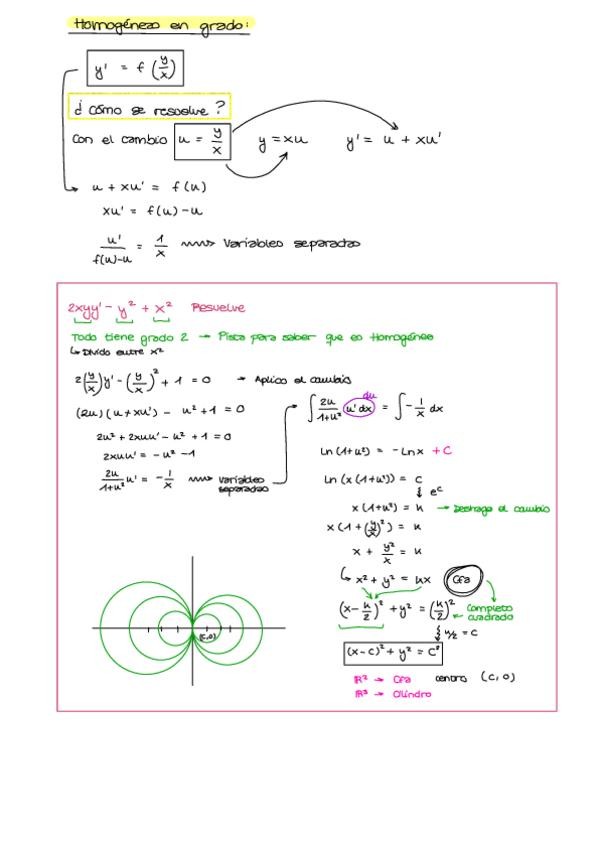 Homogéneas en grado:
y' = f (y/x)
¿Cómo se resuelve?
Con el cambio u = y/x   y = xu   y' = u + xu'
u + xu' = f(u)
xu' = f(u) - u
u'/(f(u)-u) = 1/x → Variables separadas
2xyy' - y² + x²   Resuelve
Todo tiene grado 2 → Pista para saber que es Homogéneo
↳ Divido entre x²
2(y/x)y' - (y/x)² + 1 = 0 → Aplico el cambio
(2u)(u+xu') - u² + 1 = 0
2u² + 2xuu' - u² + 1 = 0
2xuu' = -u² - 1
2u/(1+u²) u' = -1/x → Variables separadas
du
∫ 2u/(1+u²) u'dx = ∫ -1/x dx
Ln(1+u²) = -Lnx + C
Ln(x(1+u²)) = C
↓ e^C
x(1+u²) = k → Deshago el cambio
x(1+(y/x)²) = k
x + y²/x = k
↳ x² + y² = kx   Cfa
(x - k/2)² + y² = (k/2)² ← Completo cuadrado
k/2 = C
(x-c)² + y² = c²
(c,0)
ℝ² → Cfa   centro (c,0)
ℝ³ → Cilindro